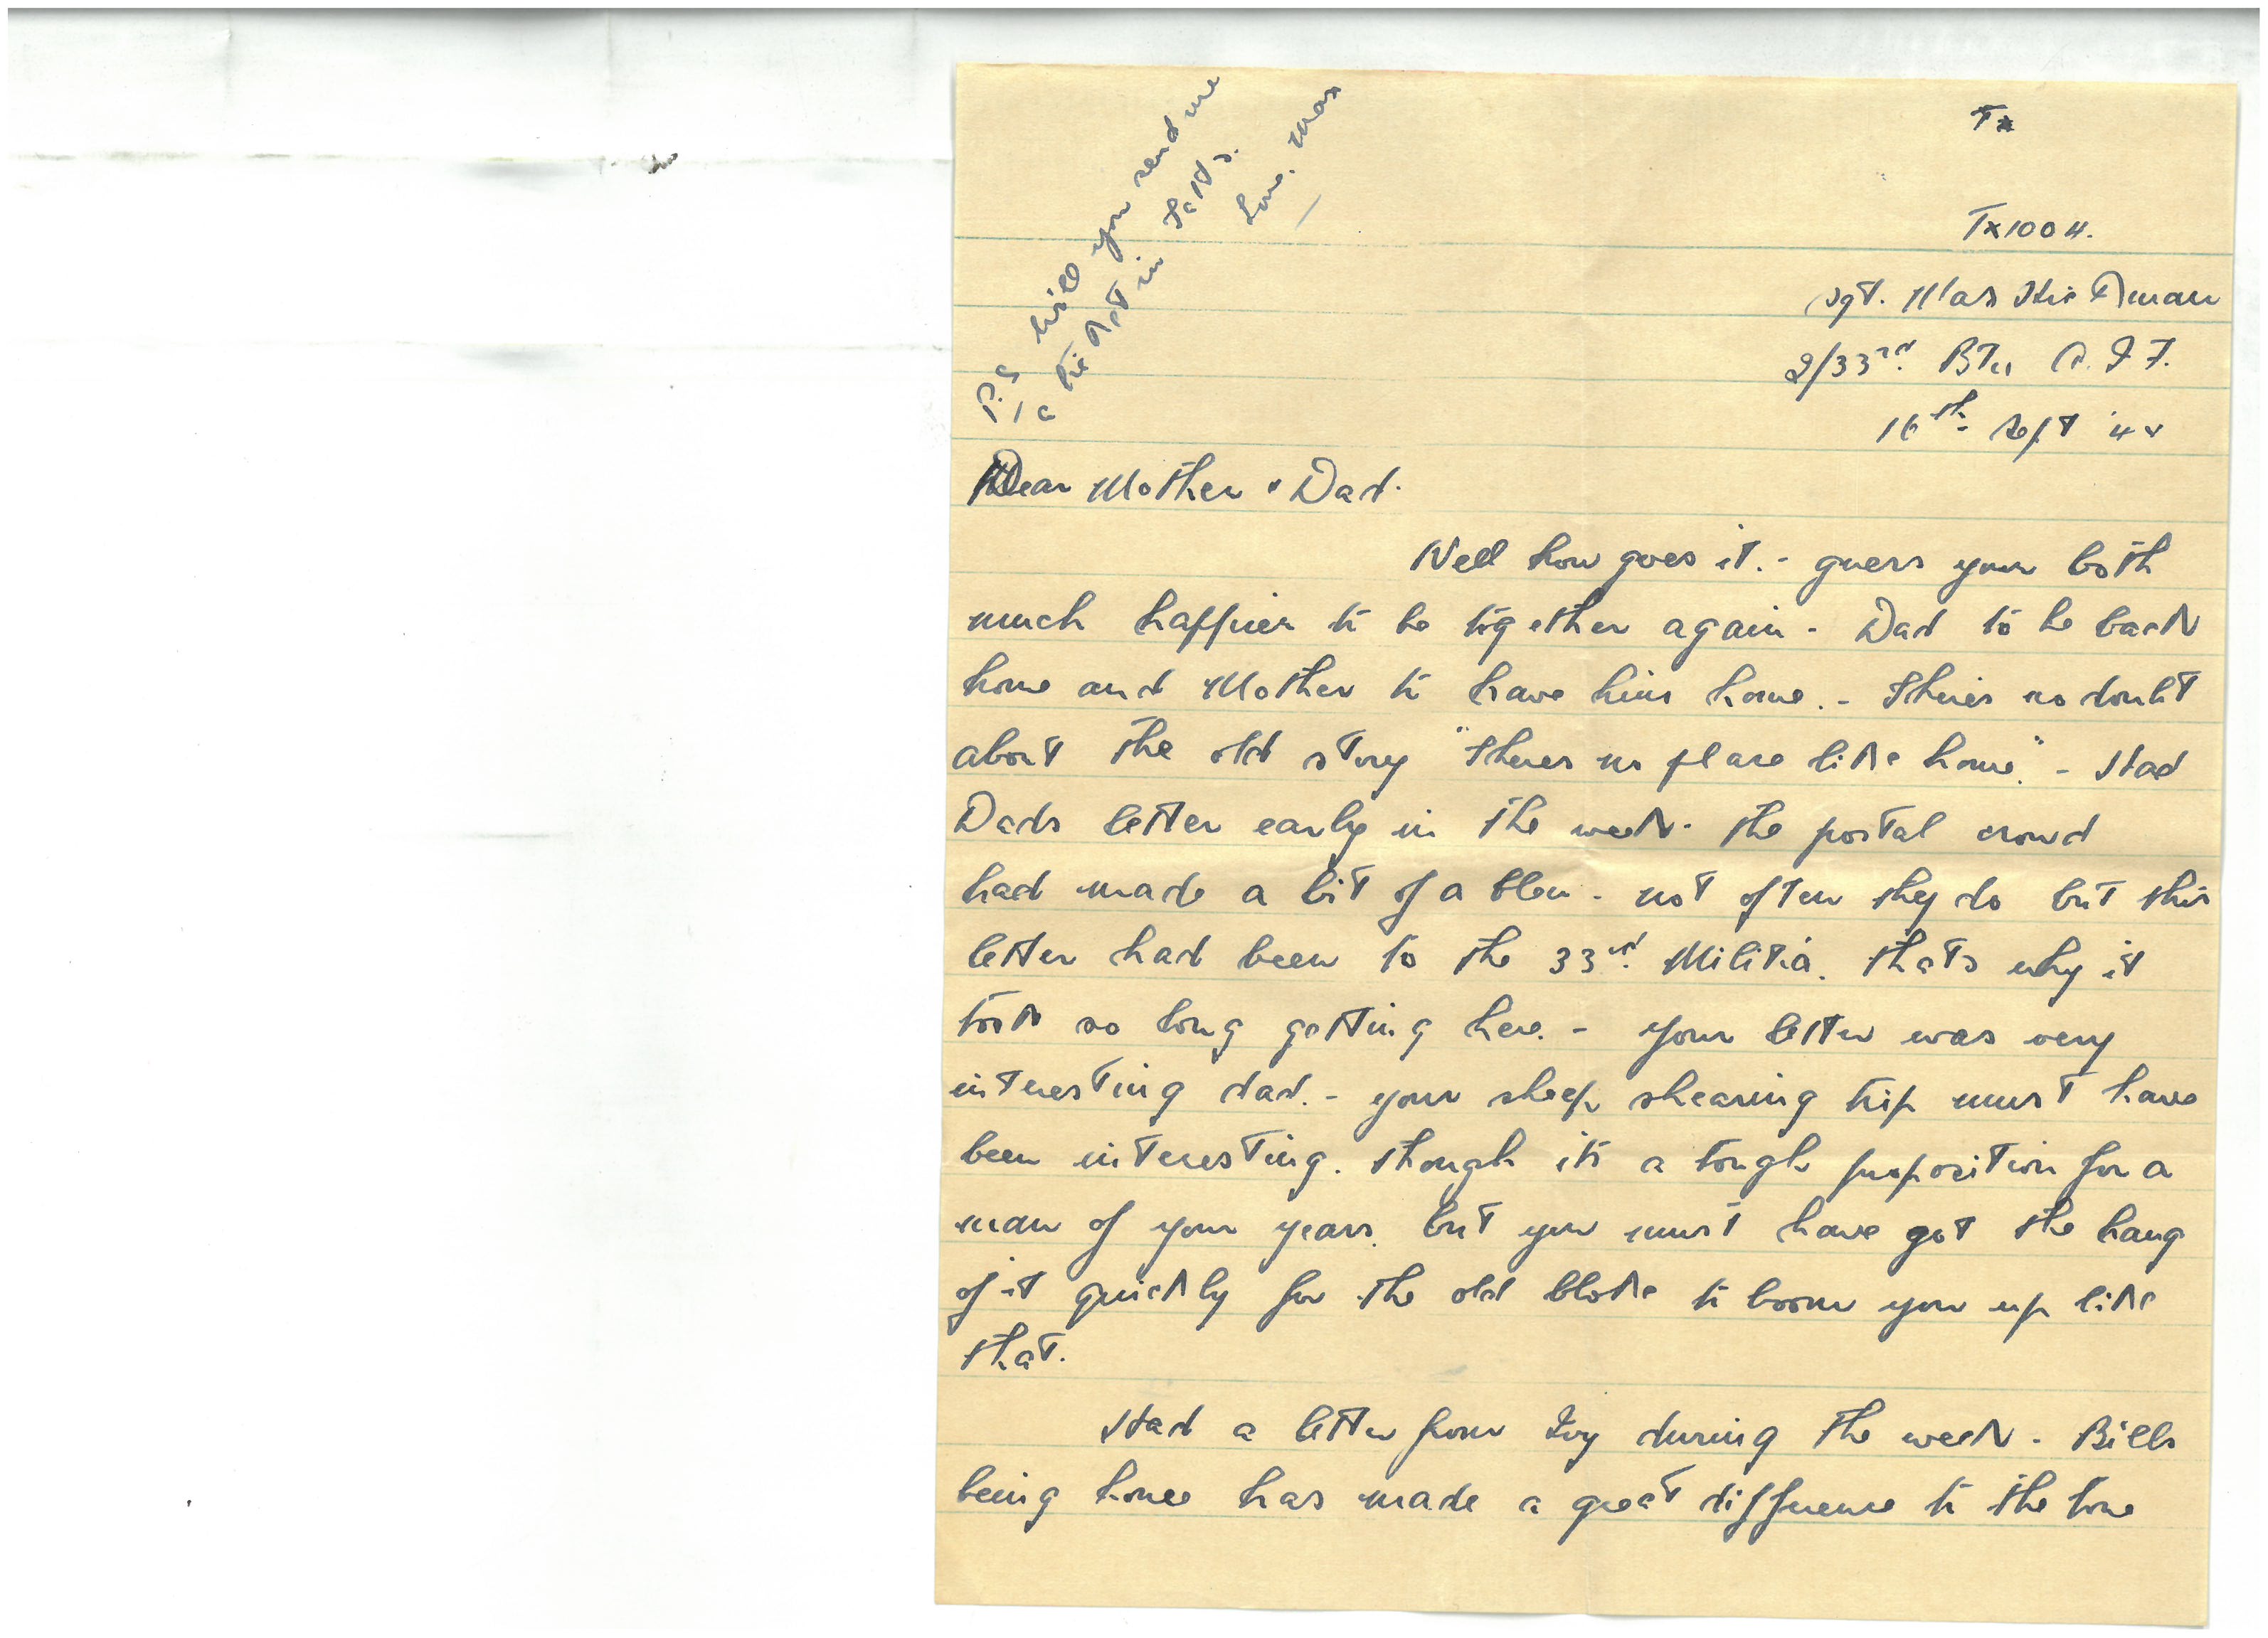 P.S. Will you send me
a Tie Pot in Felts.
Love. Max
Tx
Tx1004.
Sgt. Max Hickman
2/33rd. Btn A.I.F.
16th Sept '44
Dear Mother & Dad.
Well how goes it. - guess your both
much happier to be together again - Dad to be back
home and Mother to have him home. - There's no doubt
about the old story "theres no place like home". - Had
Dads letter early in the week. the postal crowd
had made a bit of a blew - not often they do but this
letter had been to the 33rd. Militia. thats why it
took so long getting here. - your letter was very
interesting dad. - your sheep shearing trip must have
been interesting. though its a tough proposition for a
man of your years. but you must have got the hang
of it quickly for the old bloke to boom you up like
that.
Had a letter from Ivy during the week - Bills
being home has made a great difference to the tone